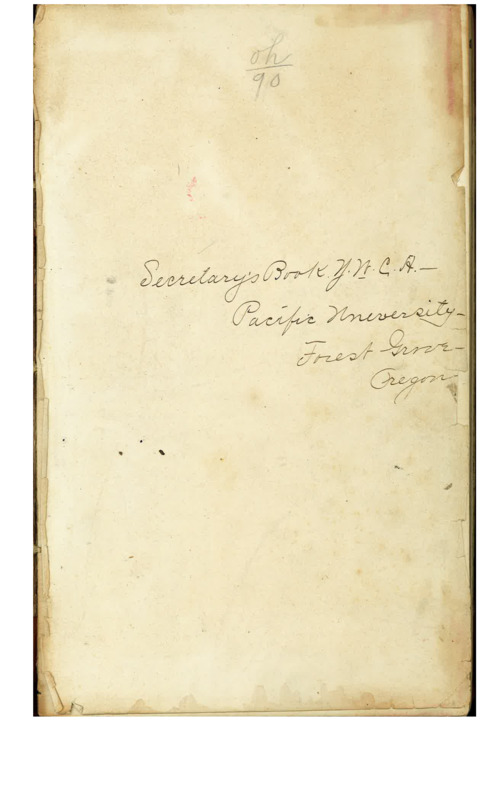 oh
90
Secretary's Book Y.W.C.A.—
Pacific University—
Forest Grove—
Oregon—